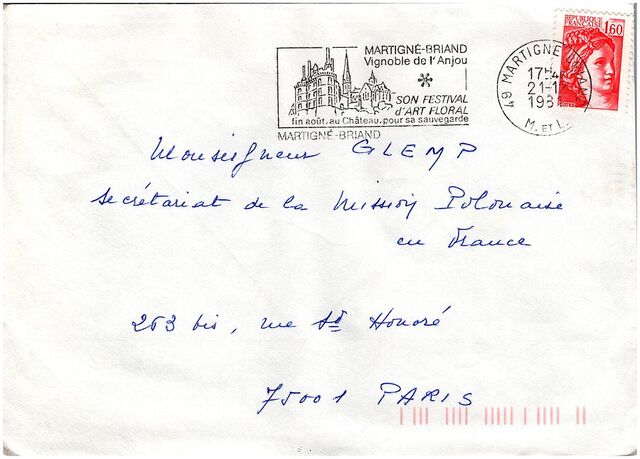 MARTIGNÉ-BRIAND
Vignoble de l'Anjou
SON FESTIVAL
d'ART FLORAL
fin août, au Château, pour sa sauvegarde
MARTIGNÉ-BRIAND
49 MARTIGNÉ
17H
21-1
198
M. ET L.
REPUBLIQUE
FRANÇAISE
1,60
POSTES
Monseigneur GLEMP
secrétariat de la Mission Polonaise
en France
263 bis, rue St Honoré
75001 PARIS